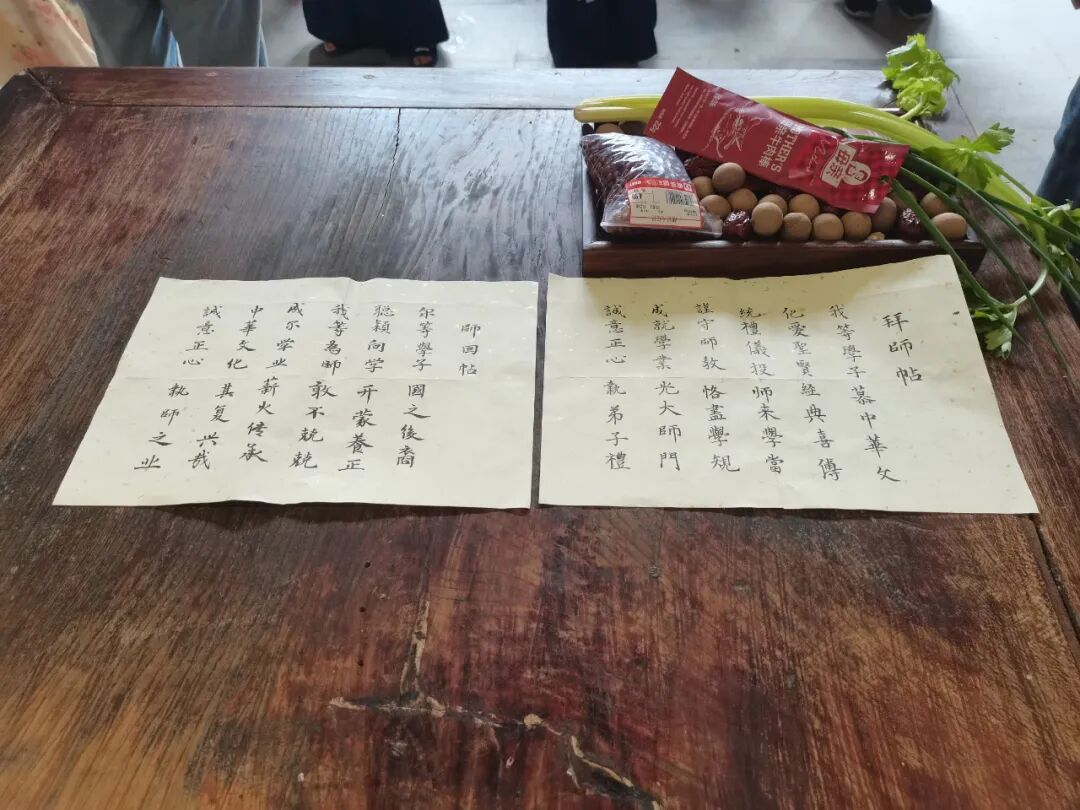 拜師帖
我等學子慕中華文
化愛聖賢經典喜傳
統禮儀投师来學當
謹守師教恪盡學規
成就學業光大師門
誠意正心執弟子禮
師回帖
尔等學子國之後裔
聪穎向学开蒙養正
我等為师敢不兢兢
成尔学业薪火传承
中華文化其复兴哉
誠意正心執師之业
THER'S
牛肉棒